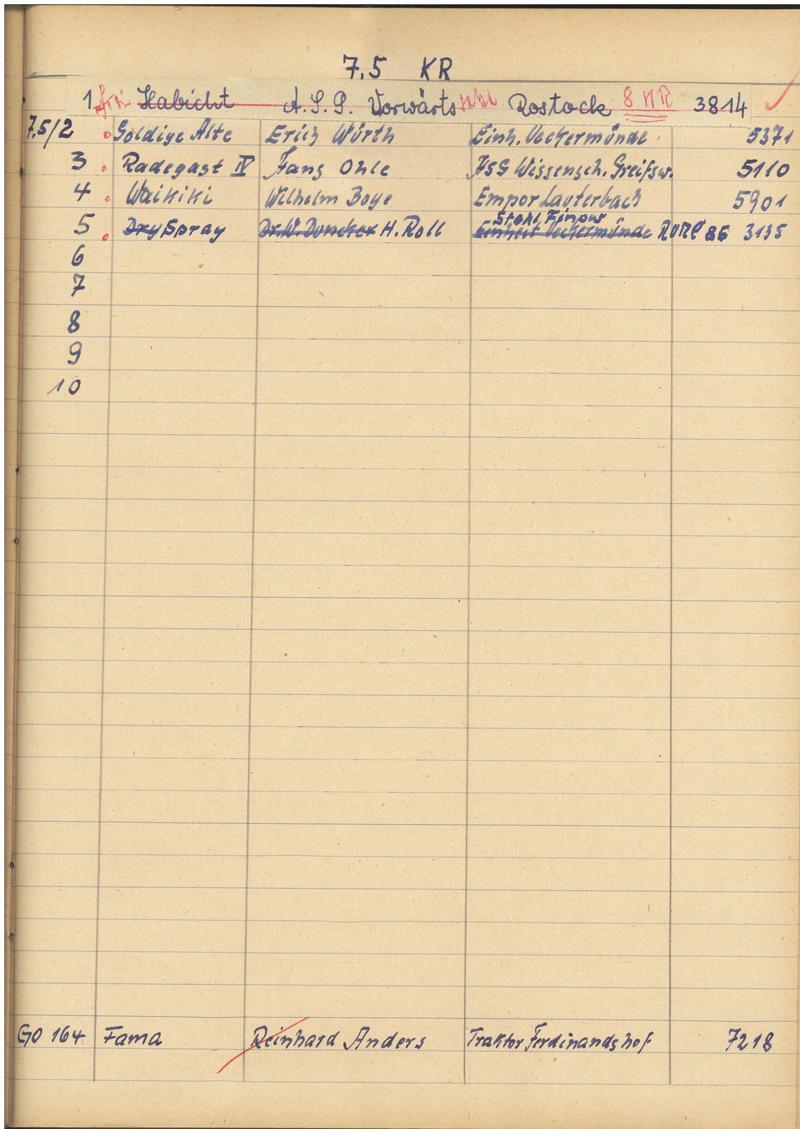 7.5 KR
1 frei Habicht A.S.G. Vorwärts Rostock 8 KR 3814
7.5/2 Goldige Alte Erich Würth Einh. Ueckermünde 5371
3 Radegast IV Hans Ohle HSG Wissensch. Greifsw. 5110
4 Waikiki Wilhelm Boye Empor Lauterbach 5901
Stahl. Finow
5 Dry Spray Dr. W. Duncker H. Roll Einheit Ueckermünde 86 3135
6
7
8
9
10
GO 164 Fama Reinhard Anders Traktor Ferdinandshof 7218